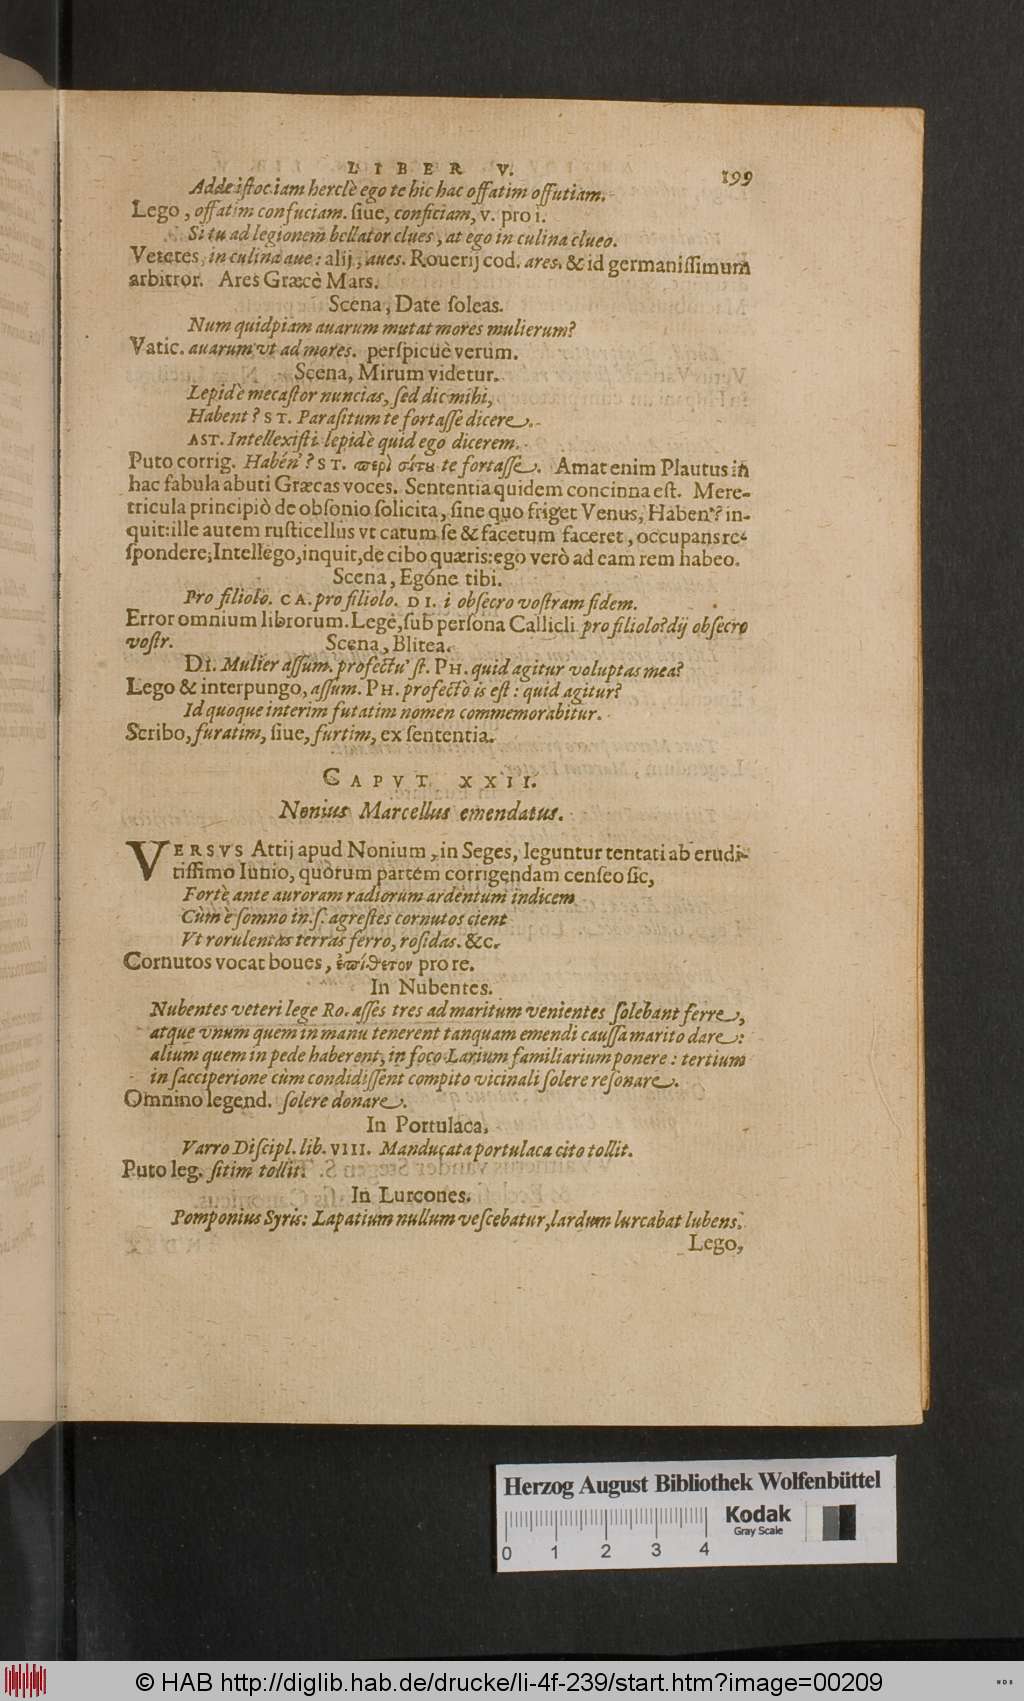 LIBER V. 199
Adde istoc iam herclè ego te hic hac offatim offutiam.
Lego, offatim confuciam. siue, conficiam, v. pro i.
Si tu ad legionem bellator clues, at ego in culina clueo.
Veteres, in culina aue: alij, aues. Rouerij cod. ares. & id germanissimum
arbitror. Ares Græcè Mars.
Scena, Date soleas.
Num quidpiam auarum mutat mores mulierum?
Vatic. auarum vt ad mores. perspicuè verum.
Scena, Mirum videtur.
Lepidè mecastor nuncias, sed dic mihi,
Habent? ST. Parasitum te fortasse dicere.
AST. Intellexisti lepidè quid ego dicerem.
Puto corrig. Habén'? ST. περὶ σίτου te fortasse. Amat enim Plautus in
hac fabula abuti Græcas voces. Sententia quidem concinna est. Mere-
tricula principiò de obsonio solicita, sine quo friget Venus, Haben'? in-
quit: ille autem rusticellus vt catum se & facetum faceret, occupans re-
spondere; Intellego, inquit, de cibo quæris: ego verò ad eam rem habeo.
Scena, Egóne tibi.
Pro filiolo. CA. pro filiolo. DI. i obsecro vostram fidem.
Error omnium librorum. Lege, sub persona Callicli pro filiolo? dij obsecro
vostr. Scena, Blitea.
DI. Mulier assum. profectu' st. PH. quid agitur voluptas mea?
Lego & interpungo, assum. PH. profectò is est: quid agitur?
Id quoque interim futatim nomen commemorabitur.
Scribo, furatim, siue, furtim, ex sententia.
CAPVT XXII.
Nonius Marcellus emendatus.
VERSVS Attij apud Nonium, in Seges, leguntur tentati ab erudi-
tissimo Iunio, quorum partem corrigendam censeo sic,
Fortè ante auroram radiorum ardentum indicem
Cùm è somno in s. agrestes cornutos cient
Vt rorulentas terras ferro, rosidas. &c.
Cornutos vocat boues, ἐπίθετον pro re.
In Nubentes.
Nubentes veteri lege Ro. asses tres ad maritum venientes solebant ferre,
atque vnum quem in manu tenerent tanquam emendi caussa marito dare:
alium quem in pede haberent, in foco Larium familiarium ponere: tertium
in sacciperione cùm condidissent compito vicinali solere resonare.
Omnino legend. solere donare.
In Portulaca.
Varro Discipl. lib. VIII. Manducata portulaca cito tollit.
Puto leg. sitim tollit.
In Lurcones.
Pomponius Syris: Lapatium nullum vescebatur, lardum lurcabat lubens.
Lego,
Herzog August Bibliothek Wolfenbüttel
Kodak
Gray Scale
0 1 2 3 4
© HAB http://diglib.hab.de/drucke/li-4f-239/start.htm?image=00209